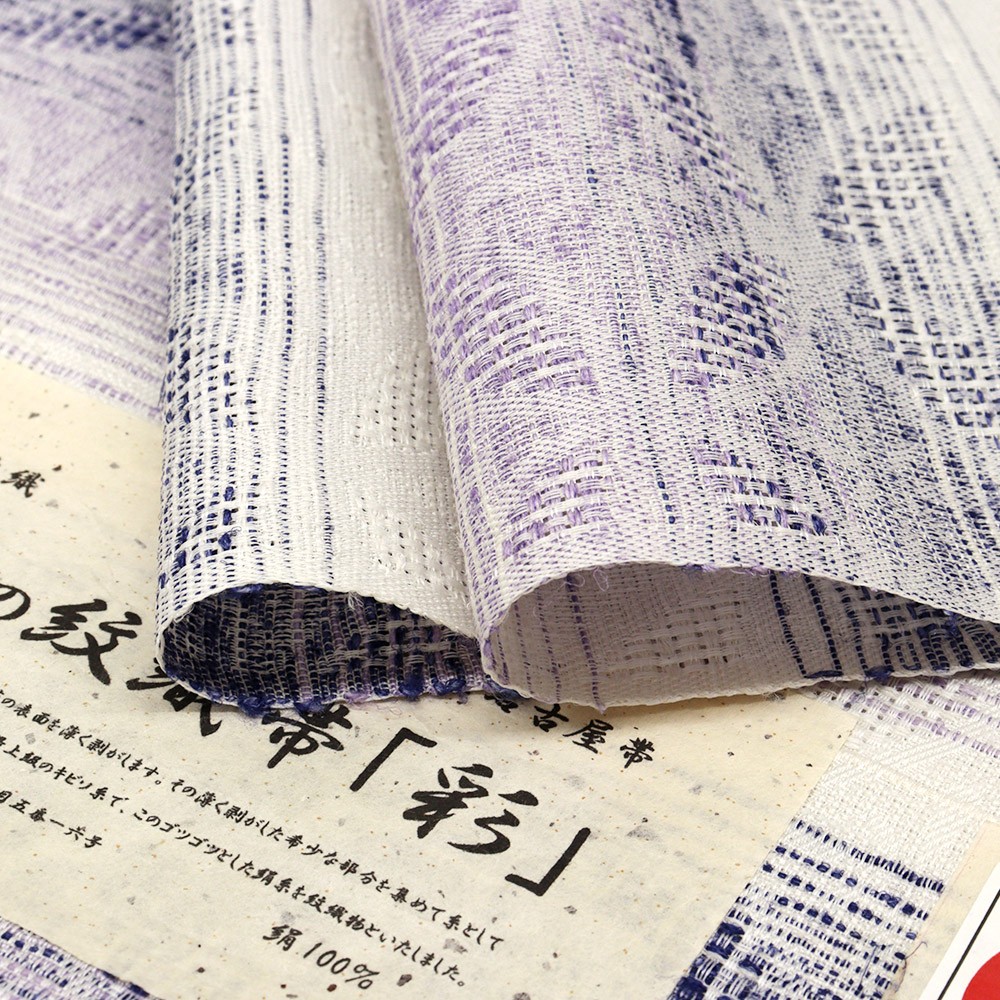 織
の紋織帯「彩」
名古屋帯
の表面を薄く剥がします。その薄く剥がした希少な部分を集めて糸として
上級のキビソ糸で、このゴツゴツとした絹糸を紋織物といたしました。
絹100%
目五番一六号